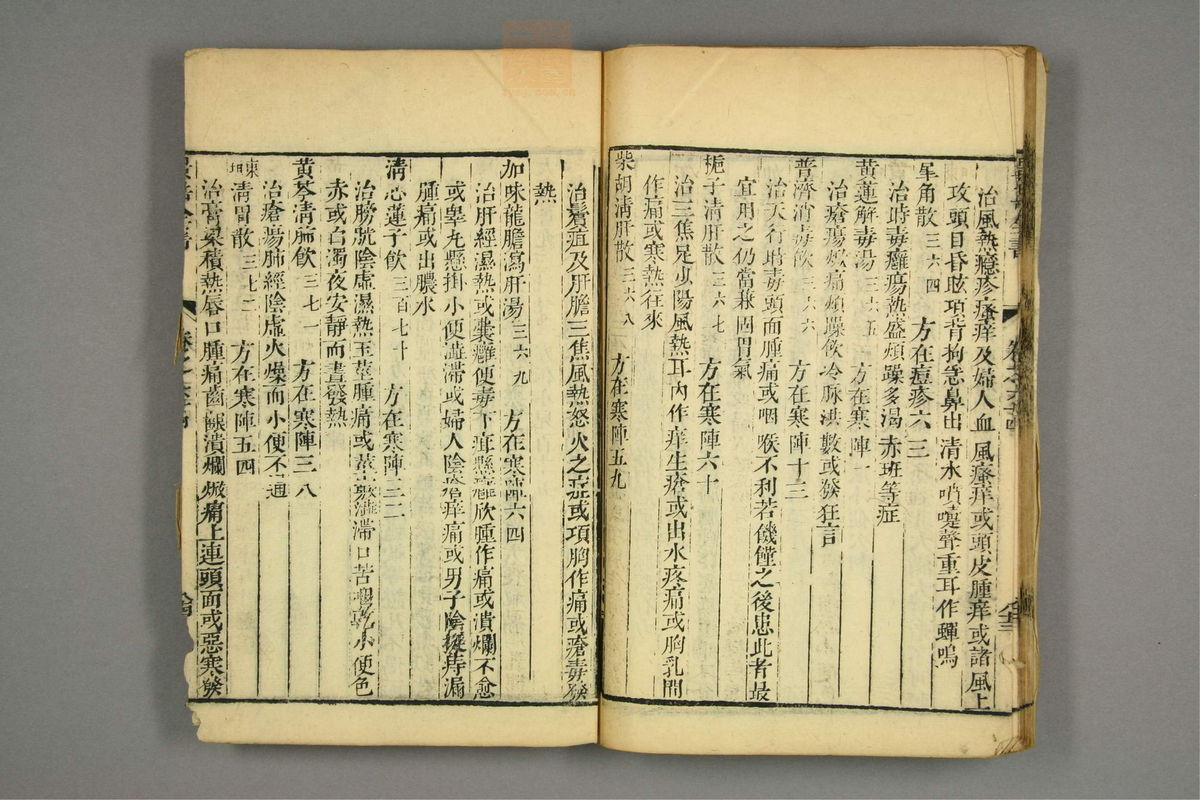 治風熱癮疹瘙痒及婦人血風瘙痒或頭皮腫痒或諸風上
攻頭目昏眩項背拘急鼻出清水噴嚏聲重耳作蟬鳴
犀角散三六四　方在痘疹六三
治時毒癰瘍熱盛煩躁多渴赤班等症
黃蓮解毒湯三六五　方在寒陣一
治瘡瘍焮痛煩躁飲冷脉洪數或發狂言
普濟消毒飲三六六　方在寒陣十三
治天行時毒頭面腫痛或咽喉不利若饑饉之後患此者最
宜用之仍當兼固胃氣
梔子清肝散三六七　方在寒陣六十
治三焦足少陽風熱耳內作痒生瘡或出水疼痛或胸乳間
作痛或寒熱往來
柴胡清肝散三六八　方在寒陣五九
治鬢疽及肝膽三焦風熱怒火之症或項胸作痛或瘡毒發
熱
加味龍膽瀉肝湯三六九　方在寒陣六四
治肝經濕熱或囊癰便毒下疳懸癰欣腫作痛或潰爛不愈
或睾丸懸掛小便澁滯或婦人陰瘡痒痛或男子陰挺痔漏
腫痛或出膿水
清心蓮子飲三百七十　方在寒陣三二
治膀胱陰虛濕熱玉莖腫痛或莖竅澁滯口苦咽乾小便色
赤或白濁夜安靜而晝發熱
黃芩清肺飲三七一　方在寒陣三八
治瘡瘍肺經陰虛火燥而小便不通
東垣清胃散三七二　方在寒陣五四
治膏粱積熱唇口腫痛齒齦潰爛焮痛上連頭面或惡寒發